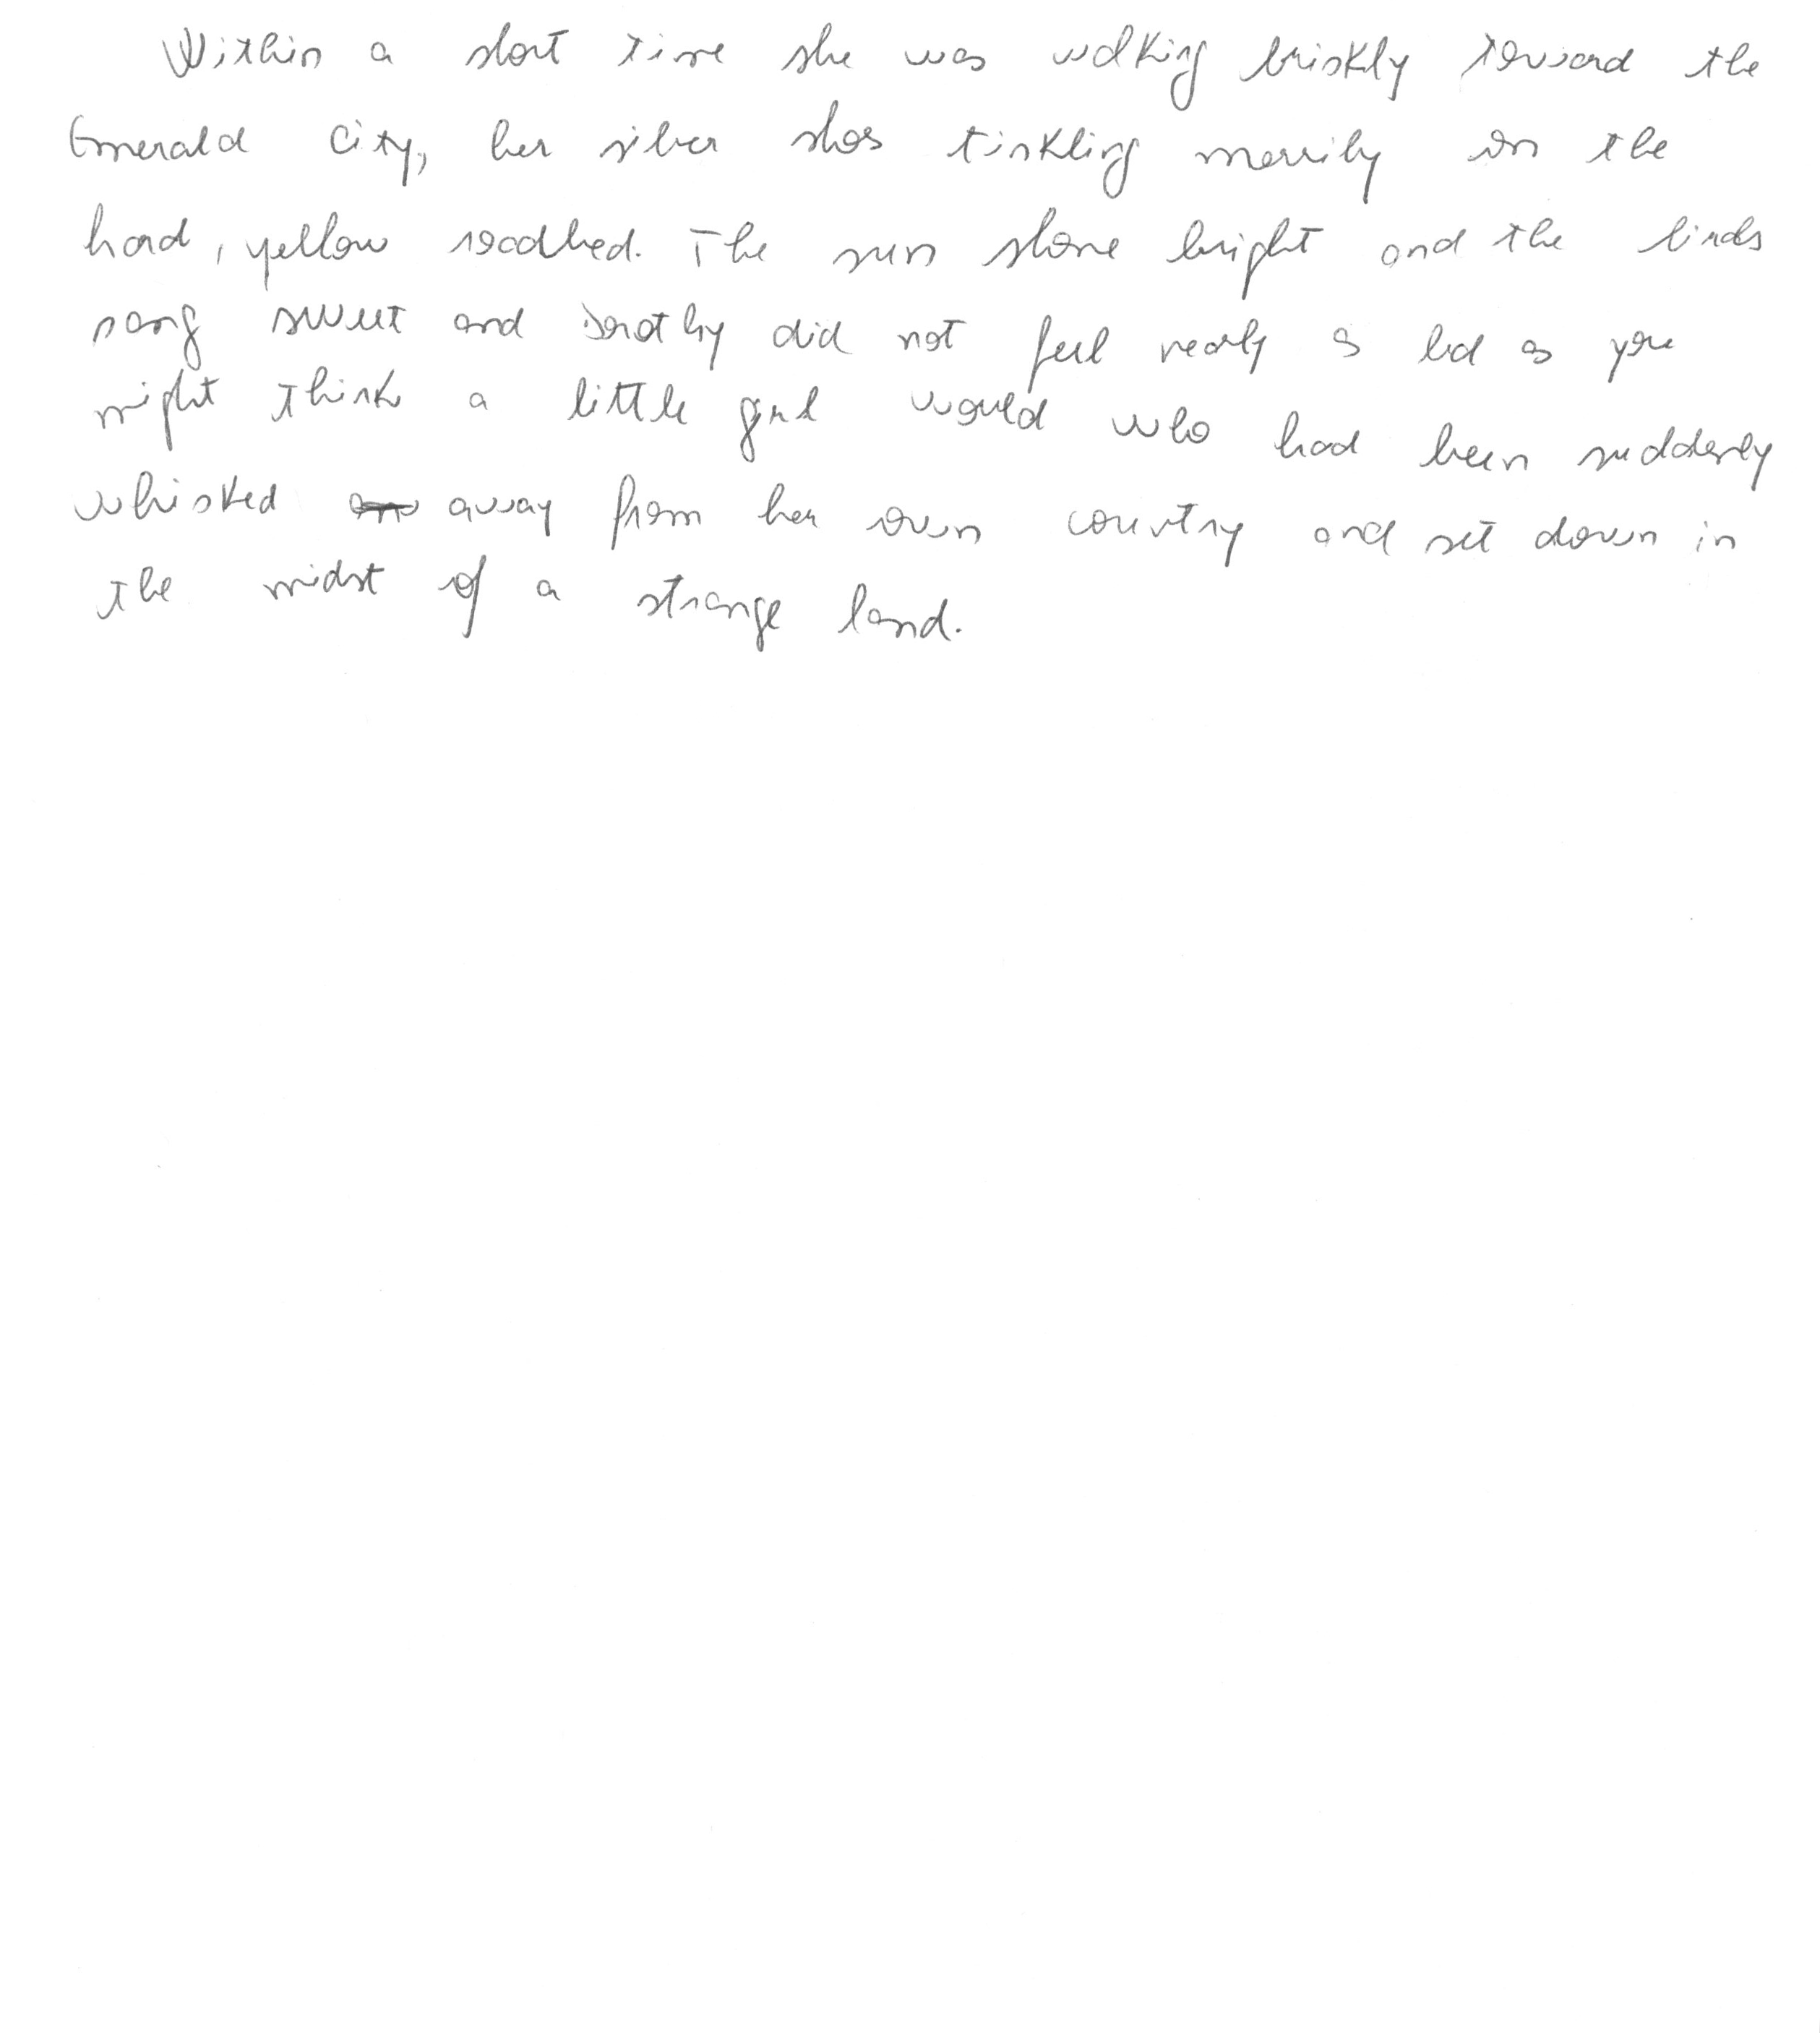 Within a short time she was walking briskly toward the
Emerald City, her silver shoes tinkling merrily on the
hard, yellow roadbed. The sun shone bright and the birds
sang sweet and Dorothy did not feel nearly as bad as you
might think a little girl would who had been suddenly
whisked away from her own country and set down in
the midst of a strange land.